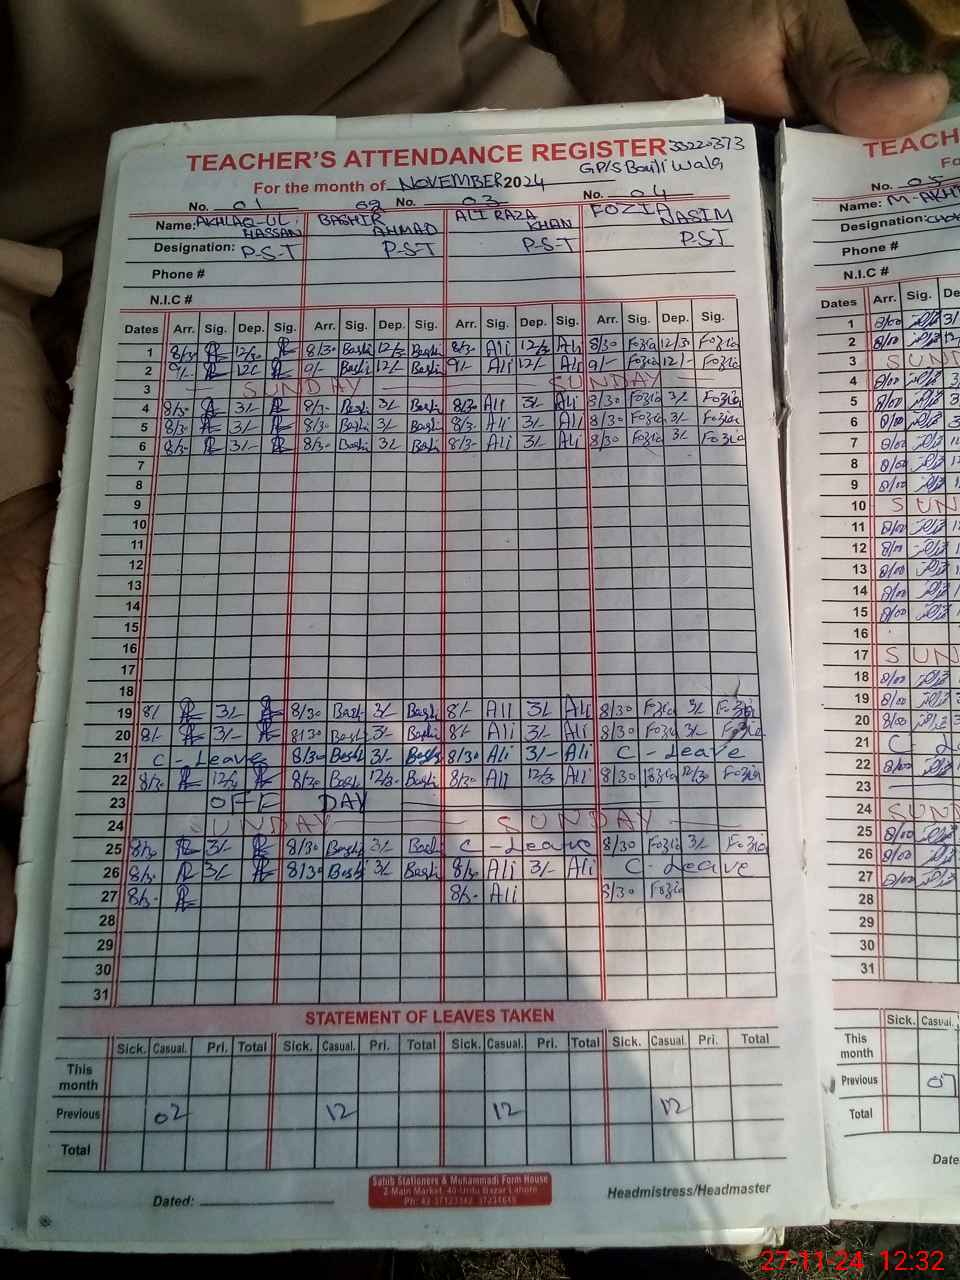 TEACHER'S ATTENDANCE REGISTER 35220373
GP/S Bouli Wala
For the month of NOVEMBER 2024
No. 01 02 No. 03 No. 04
Name: AKHLAQ-UL-HASSAN BASHIR AHMAD ALI RAZA KHAN FOZIA NASIM
Designation: P-S-T P-S-T P-S-T P-S-T
Phone #
N.I.C #
Dates Arr. Sig. Dep. Sig. Arr. Sig. Dep. Sig. Arr. Sig. Dep. Sig. Arr. Sig. Dep. Sig.
1 8/30 12/30 8/30 Bashi 12/30 Bashi 8/30 Ali 12/30 Ali 8/30 Fozia 12/30 Fozia
2 9/- 12/- 9/- Bashi 12/- Bashi 9/- Ali 12/- Ali 9/- Fozia 12/- Fozia
3 SUNDAY SUNDAY
4 8/30 3/- 8/30 Bashi 3/- Bashi 8/30 Ali 3/- Ali 8/30 Fozia 3/- Fozia
5 8/30 3/- 8/30 Bashi 3/- Bashi 8/30 Ali 3/- Ali 8/30 Fozia 3/- Fozia
6 8/30 3/- 8/30 Bashi 3/- Bashi 8/30 Ali 3/- Ali 8/30 Fozia 3/- Fozia
7
8
9
10
11
12
13
14
15
16
17
18
19 8/- 3/- 8/30 Bashi 3/- Bashi 8/- Ali 3/- Ali 8/30 Fozia 3/- Fozia
20 8/- 3/- 8/30 Bashi 3/- Bashi 8/- Ali 3/- Ali 8/30 Fozia 3/- Fozia
21 C - Leave 8/30 Bashi 3/- Bashi 8/30 Ali 3/- Ali C - Leave
22 8/30 12/30 8/30 Bashi 12/30 Bashi 8/30 Ali 12/30 Ali 8/30 Fozia 12/30 Fozia
23 OFF DAY
24 SUNDAY SUNDAY
25 8/30 3/- 8/30 Bashi 3/- Bashi C - Leave 8/30 Fozia 3/- Fozia
26 8/30 3/- 8/30 Bashi 3/- Bashi 8/30 Ali 3/- Ali C - Leave
27 8/30 8/30 Ali 8/30 Fozia
28
29
30
31
STATEMENT OF LEAVES TAKEN
Sick. Casual. Pri. Total Sick. Casual. Pri. Total Sick. Casual. Pri. Total Sick. Casual. Pri. Total
This month
Previous 02 12 12 12
Total
Sahib Stationers & Muhammadi Form House
2-Main Market, 40-Urdu Bazar Lahore
Dated: Headmistress/Headmaster
TEACH
Fo
No. 05
Name: M-AKH
Designation:
Phone #
N.I.C #
Dates Arr. Sig. De
1 8/00
2 8/00
3 SUN
4 8/00
5 8/00
6 8/00
7 8/00
8 8/00
9 8/00
10 SUN
11 8/00
12 8/00
13 8/00
14 8/00
15 8/00
16
17 SUN
18 8/00
19 8/00
20 8/00
21 C - Le
22 8/00
23
24 SUN
25 8/00
26 8/00
27 8/00
28
29
30
31
Sick. Casual.
This month
Previous 07
Total
Date
27-11-24 12:32